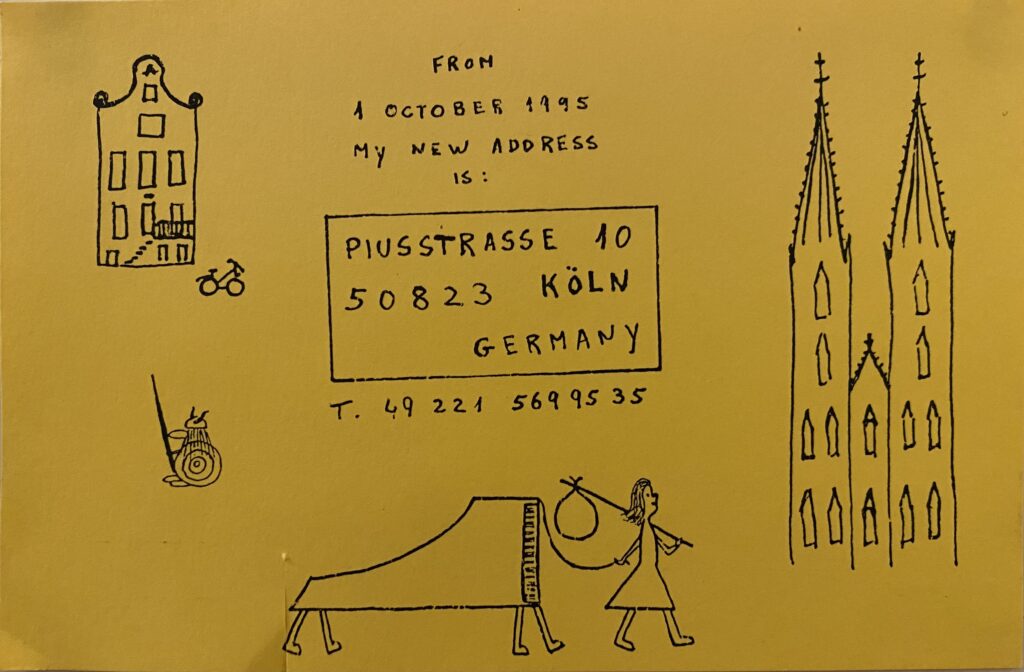 FROM
1 OCTOBER 1995
MY NEW ADDRESS
IS:
PIUSSTRASSE 10
50823 KÖLN
GERMANY
T. 49 221 5699535